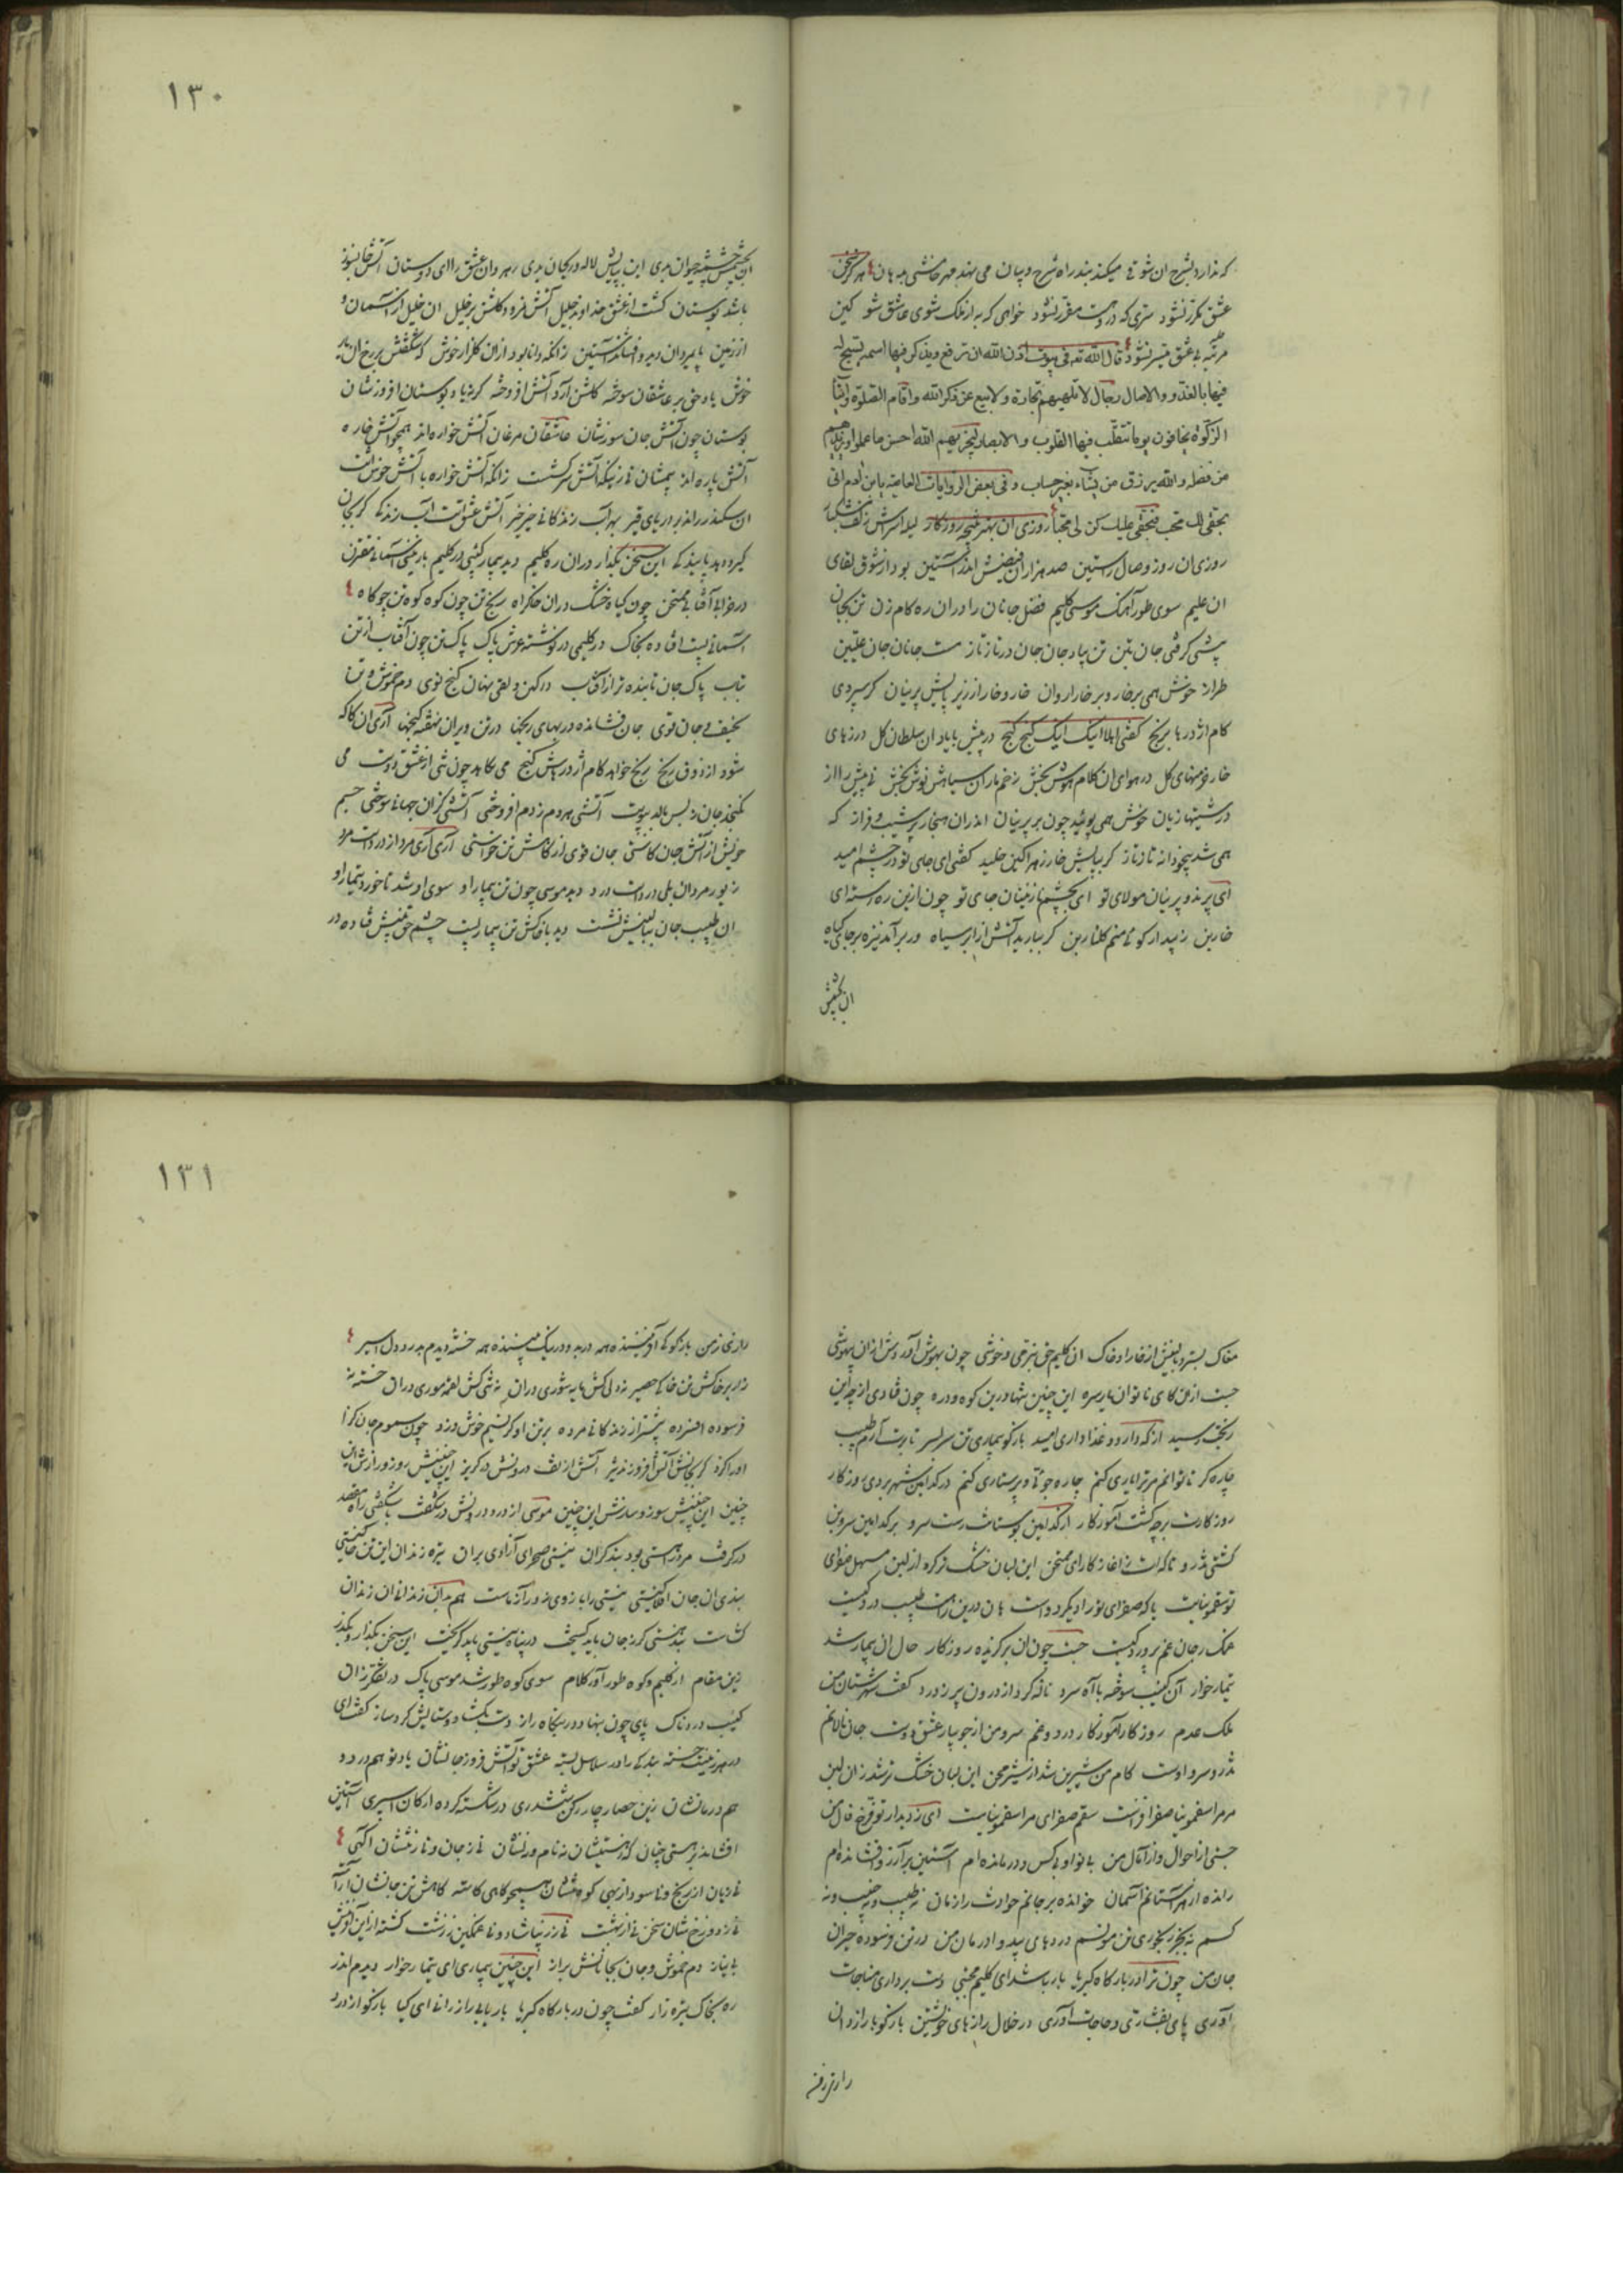 که نذارد بشرح آن شوقی میکند بند راه شرح و بیان می نهد مهر خامشی به دهان هرگز سخن
عشق مکرر نشود سری که در اوست مقرر نشود خواهی که به از ملک شوی عاشق شو کین
مرتبه بی عشق میسر نشود قال الله تعه فی بیوت اذن الله ان ترفع ویذکر فیها اسمه یسبح له
فیها بالغدو والاصال رجال لاتلهیهم تجارة ولابیع عن ذکرالله واقام الصلوة وایتآ
الزکوة یخافون یوما تتقلب فیها القلوب والابصار لیجزیهم الله احسن ما عملوا ویزیدهم
من فضله والله یرزق من یشاء بغیر حساب وفی بعض الروایات یابن ادم انی
بحقی لک محب فبحقی علیک کن لی محبا روزی آن روزکار
روزی آن روز وصال راستین صد هزاران فیضش اندر آستین بود از شوق لقای
آن علیم سوی طور آهنک موسی کلیم فضل جانان را در آن ره کام زن
جان بتن تن پیاده جان جان در ناز تاز جانان جان
طراز خوش همی بر خار و بر خارا روان خار و خارا زیر پایش پرنیان کر سپردی
کام اژدرها برنج کفتی اهلا اینک اینک کنج کنج در پیش بایاد آن سلطان کل درزهای
خار خرمنهای کل در هوای آن کلام هوش بخش زخم ماران سیاهش نوش بخش
درشتیها زیان خوش همی پوئید چون بر پرنیان اندران هنجار پرشیب و فراز که
همی شد بیخودانه تازتاز کر بپایش خار زهراکین خلید کفتی ای جای تو در چشم امید
ای پرند و پرنیان مولای تو ای بچشم نازنینان جای تو چون ازین ره رسته ای
خار بن زیبد ار کوئی منم کلنار بن کر ببارید آتش از ابر سیاه ور برآمد نیزه بر جای کیاه
آن بچشمش
١٣٠
آن بچشمش چشمه حیوان بدی این بپایش لاله و ریحان بدی رهروان عشق را ای دوستان آتش
باشد بوستان کشت از عشق خداوند جلیل آتش نمرود کلشن بر خلیل آن خلیل از آسمان و
از زمین پایمردان دید و افشاند آستین زانکه دانا بود از آن کلزار خوش که شکفتش بر رخ
خوش باد حق بر عاشقان سوخته کلشن آرد آتش افروخته
بوستان چون آتش جان سوزشان عاشقان مرغان آتش خواره اند همچو آتش خاره
آتش پاره اند بیمشان نی زینکه آتش سرکشست زانکه آتش خواره با آتش خوش است
آن سکندر راند بر دریای قیر بهر آب زندکانی خیر خیر آتش عشق است آب زندکی
این سخن بکذار در آن ره کلیم دید بیماری
آفتابی ممتحن چون کیاه خشک در آن خاکراه رنج تن چون کوه کوه تن چو کاه
آسمانی پست افتاده بخاک در کلیمی در نوشته عرش پاک پاک تن چون آفتاب از تن
بتاب پاک جان تابنده تر از آفتاب در کهن دلقی نهان کنج نوی دم خموش و تن
نحیف و جان قوی جان فشانده در بهای رنجها در تن ویران نهفته کنجها آری آنکاکه
شود از ذوق رنج رنج خواهد کام اژدر باش کنج می بکاهد چون شی از عشق دوست می
نکنجد جان ز بس بالد بپوست آتشی هر دم ز دم افروختی آتشی کزان جهانی سوختی جسم
خویش از آتش جان کاستی جان قوی از کاهش تن خواستی آری آری مرد از درد است مرد
زیور مردان بلی درد است درد دید موسی چون تن بیمار او سوی او شد تا خورد تیمار او
آن طبیب جان ببالینش نشست دید با خاکش تن بیمار پست چشم حق بینش فتاده در
مغاک بستر و بالینش از خارا و خاک آن کلیم حق بنرمی و خوشی چون بهوش آوردش از آن بیهوشی
جست ازو کای ناتوان یار سره این چنین تنها درین کوه و دره چون فتادی از چه این
رنجت رسید از که دارو و غذا داری امید بازکو بیماری تن سر بسر تا برت آرم طبیب
چاره کر تا توانم مر ترا یاری کنم چاره جوئی و پرستاری کنم در کدامین شهر بردی روزکار
روزکارت بر چه کشت آموزکار از کدامین بوستانت رست سرو بر کدامین سروبن
کشتی تذرو تا که است ز آغاز کار ای ممتحن این لبان خشک تر کرد از لبن مسهل صفرای
تو سقمونیاست یا که صفرای تو را دیکر دواست هان درین راهت طبیب درد کیست
غمک ر جان غم پرورد کیست جست چون آن برکزیده روزکار حال آن بیمار شد
تیمارخوار آن کئیب سوخته با آه سرد ناله کرد از درون پر ز درد کفت شهرستان من
ملک عدم روزکار آموزکارم درد و غم سرو من از جویبار عشق دوست جان نالانم
تذرو سرو اوست کام من شیرین شد از شیر محن این لبان خشک تر شد زان لبن
مر مرا سقمونیا صفرا فزاست سقم صفرای مرا سقمونیاست ای ز دیدار تو فرخ فال من
جستی از احوال و از آمال من بی نوا و بی کس و درمانده ام آستین بر آرزو افشانده ام
رانده از هر آستانم آسمان خوانده بر جانم حوادث را زمان نه طبیب و نه حبیب و نه
کسم نه بجز رنجوری تن مونسم دردهای بیدوا درمان من در تن فرسوده حیران
جان من چون ترا در بارکاه کبریا بار باشد ای کلیم مجتبی دست برداری مناجات
آوری پای بفشاری و حاجات آوری در خلال رازهای خویشتن بازکو با رازدان
رازی ز من
١٣١
رازی ز من بازکو کای آفریننده همه دید و در نیک بیننده همه خسته دیدم بدرد دل اسیر
زار بر خاکش تن خاکی حصیر نه دلی کش مایه شوری در آن نه تنی کش لقمه موری در آن خسته
فرسوده افسرده پیشتر از زندکانی مرده بر تن او کر نسیم خوش وزد چون سموم جان کزا
او را کزد کر بجانش آتش افروزد تبش آتش از تف درونش در کریز این چنینش روز و رازش این
چنین این چنینش سوز و سازش این چنین موسی از درد درونش در شکفت
درکرفت مرد را هستی بود بند کران نیستی صحرای آزادی بر آن تیره زندان این تن خاکیستی
بندی آن جان افلاکیستی نیستی را بازوی زورآزماست هم بدان زندانیان زندان
کشاست بند هستی کر ز جان باید کسیخت در پناه نیستی باید کریخت این سخن بکذار و بکذر
زین مقام از کلیم و کوه طور آور کلام سوی کوه طور شد موسی پاک در تفکر زان
کئیب دردناک پای چون بنهاد در بنکاه راز دست بکشاد و ستایش کرد ساز کفت ای
در هر زمینت خسته بندکی را در سلاسل بسته عشق تو آتش فروز جانشان یاد تو هم درد و
هم درمانشان زین حصار چار رکن ششدری در شکسته کرده ارکان اسیری آستین
افشانده بر هستی چنان که ز هستیشان نه نام و نه نشان نی ز جان و نی ز تنشان آکهی
نی زیان از رنج و نی سود از بهی کوه تنشان همچو کاهی کاسته کاهش تن جانشان آراسته
نی ز دوزخ شان سخن نی از بهشت نی ز زیباشاد و نی غمکین ز زشت کشته از این آفرینش
بی نیاز دم خموش و جان بجانانش براز این چنین بیماری ای تیمارخوار دیدم اندر
ره بخاک تیره زار کفت چون در بارکاه کبریا باریابی راز رانی ای کیا بازکو از درد